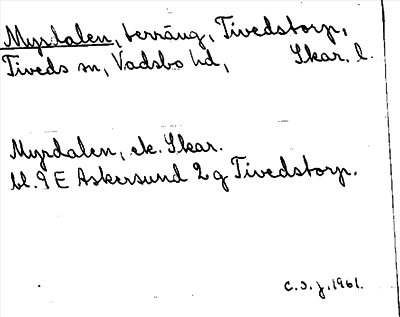 Myrdalen, terräng, Tivedstorp,
Tiveds sn, Vadsbo hd, Skar. l.
Myrdalen, ek. Skar.
bl. 9 E Askersund 2 g Tivedstorp.
C.S.J. 1961.